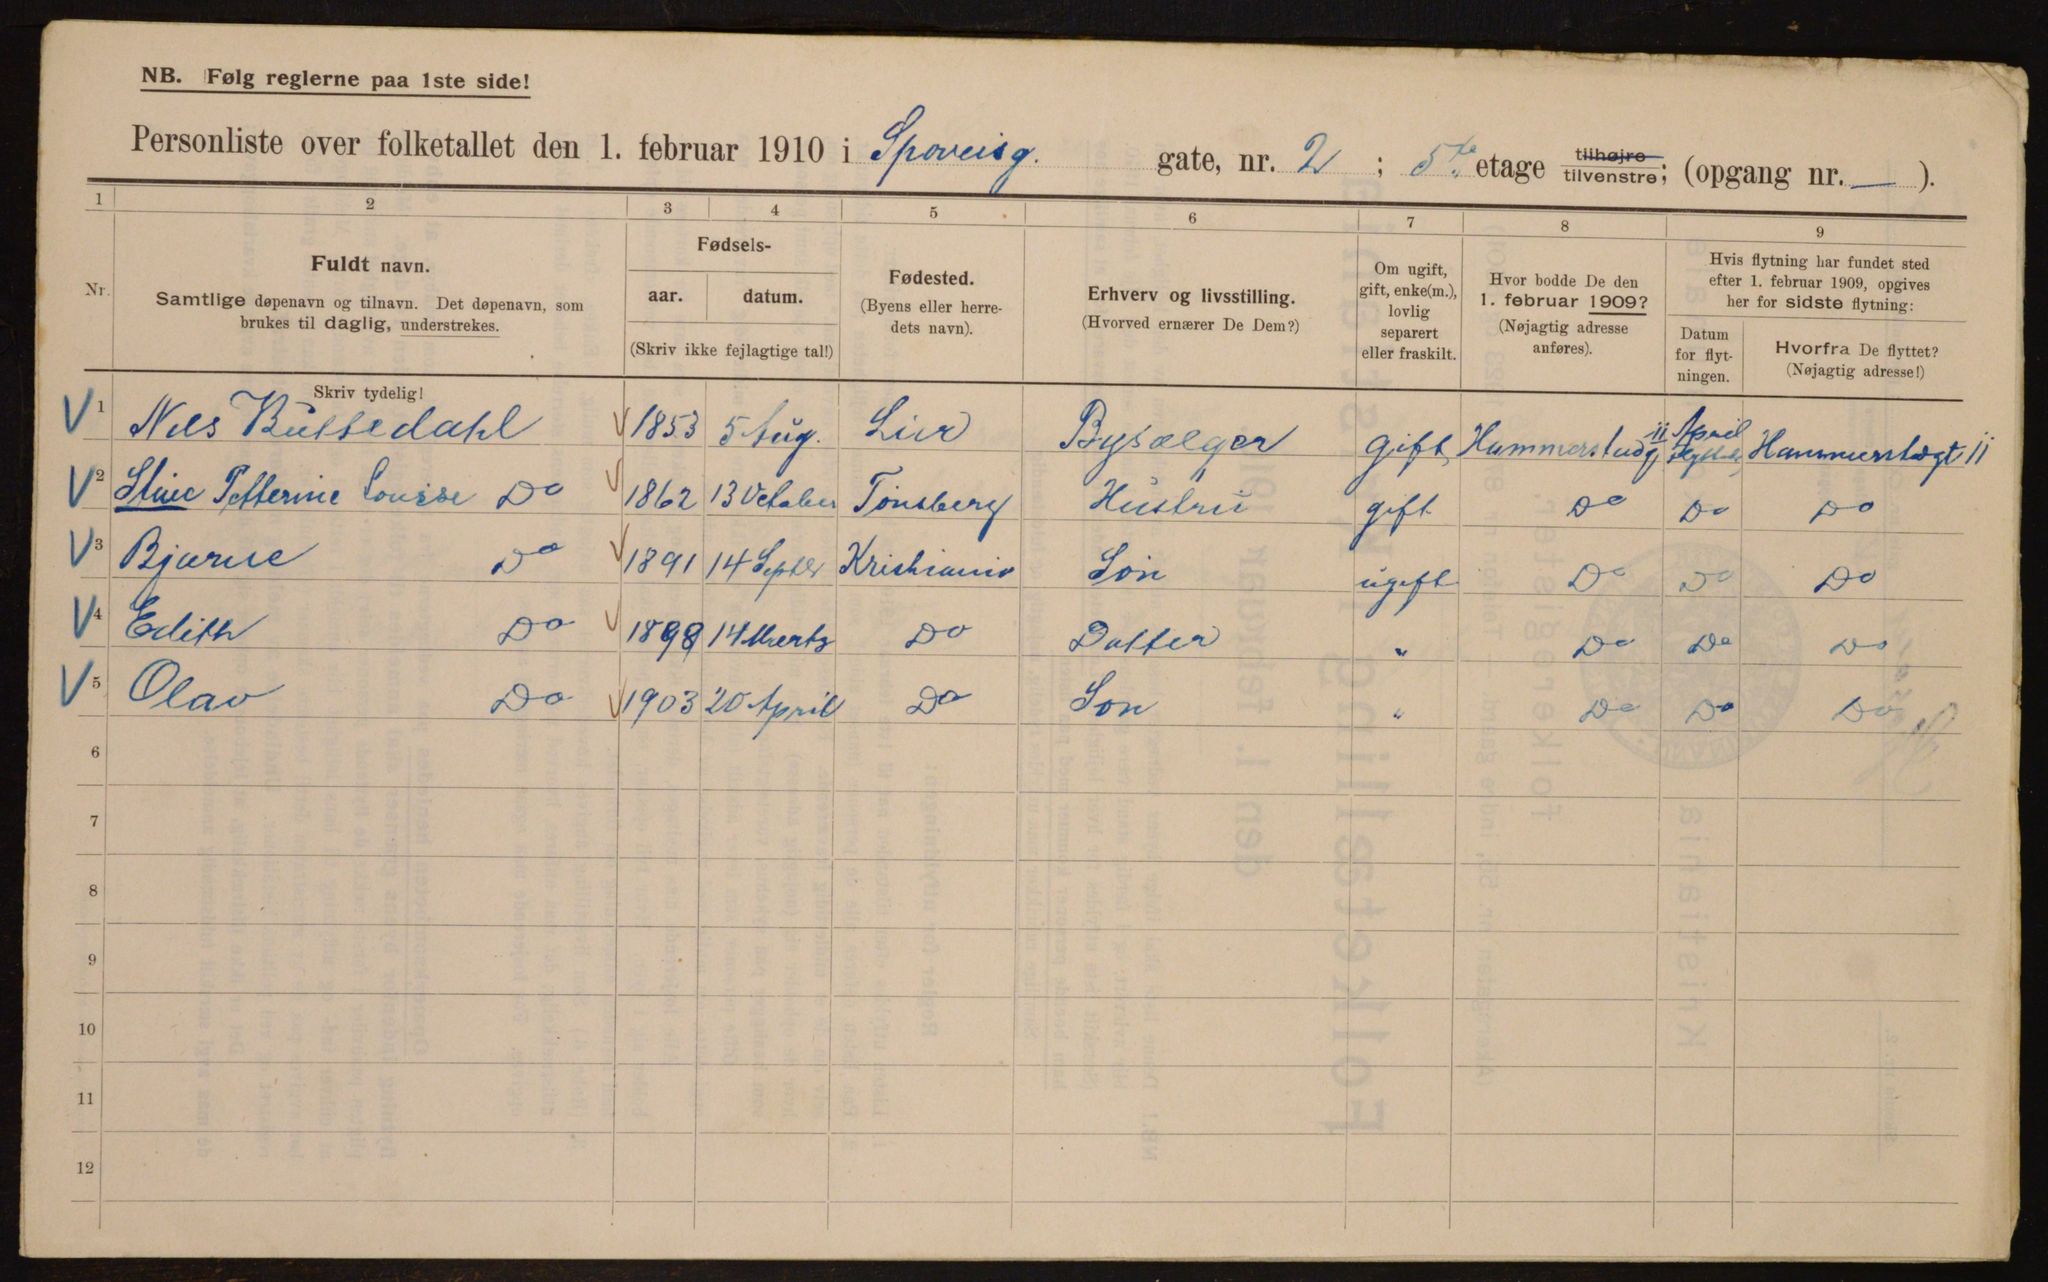 NB. Følg reglerne paa 1ste side!
Personliste over folketallet den 1. februar 1910 i Sporveisg. gate, nr. 2 ; 5te etage tilhøjre tilvenstre; (opgang nr. — ).
1 2 3 4 5 6 7 8 9
Nr.
Fuldt navn.
Samtlige døpenavn og tilnavn. Det døpenavn, som
brukes til daglig, understrekes.
Skriv tydelig!
Fødsels-
aar. datum.
(Skriv ikke fejlagtige tal!)
Fødested.
(Byens eller herre-
dets navn).
Erhverv og livsstilling.
(Hvorved ernærer De Dem?)
Om ugift,
gift, enke(m.),
lovlig
separert
eller fraskilt.
Hvor bodde De den
1. februar 1909?
(Nøjagtig adresse
anføres).
Hvis flytning har fundet sted
efter 1. februar 1909, opgives
her for sidste flytning:
Datum
for flyt-
ningen.
Hvorfra De flyttet?
(Nøjagtig adresse!)
V 1 Nils V 1853 5 Aug. Lier Bysælger gift 11 April 11
V 2 Petterine Lousse Do V 1862 13 October Tönsberg Hustru gift Do Do Do
V 3 Bjarne Do V 1891 14 Septbr Kristiania Sön ugift Do Do Do
V 4 Edith Do V 1898 14 Marts Do Datter " Do Do Do
V 5 Olav Do V 1903 20 April Do Son " Do Do Do
6
7
8
9
10
11
12